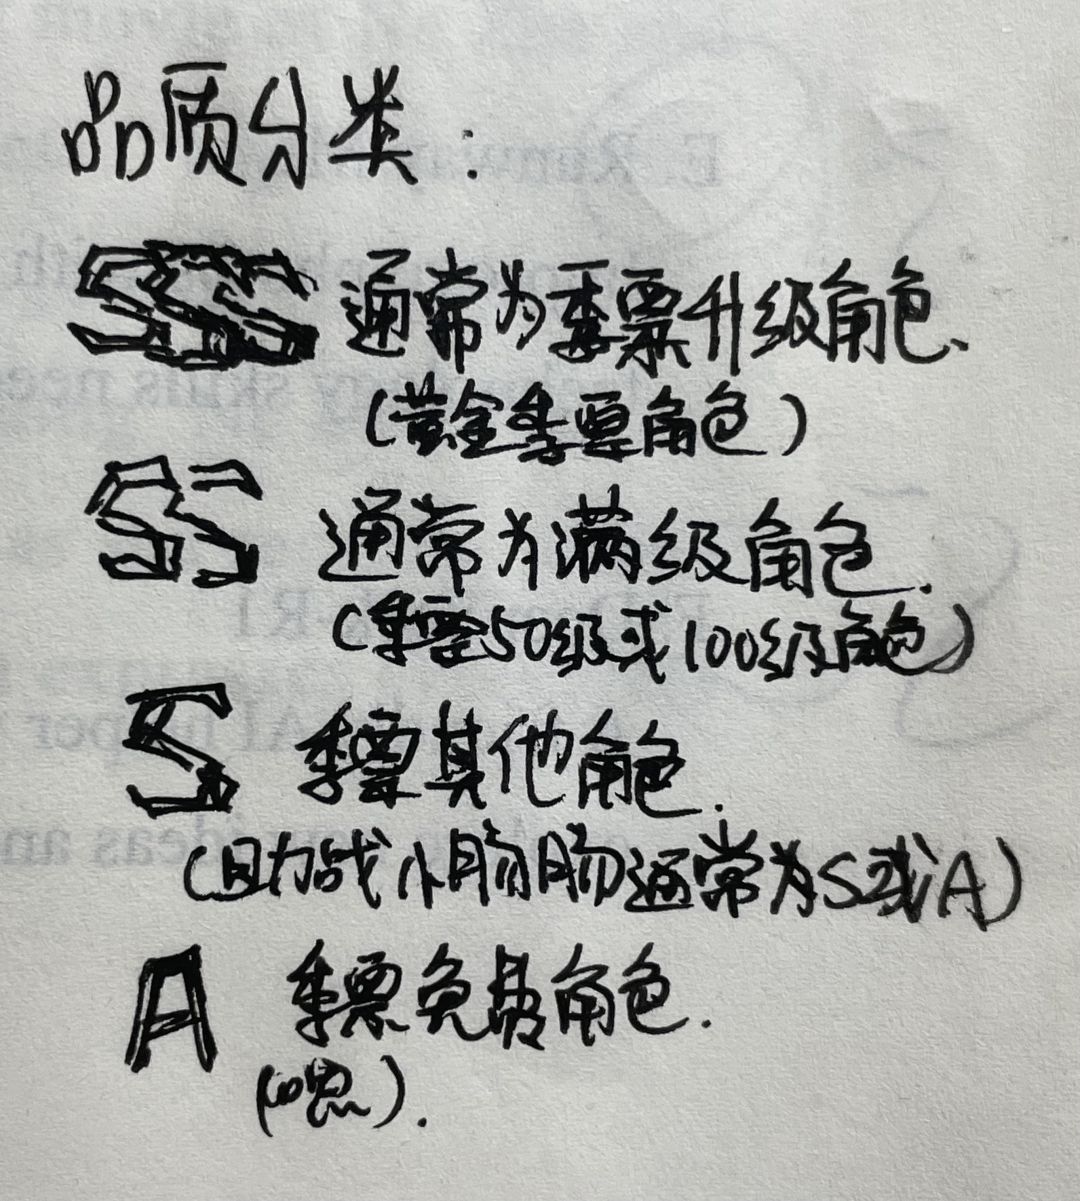 品质分类：
SSS 通常为季票升级角色.
(黄金季票角色)
SS 通常为满级角色.
(季票50级或100级角色)
S 季票其他角色.
(助战小肠肠通常为S或A)
A 季票免费角色.
(嗯).